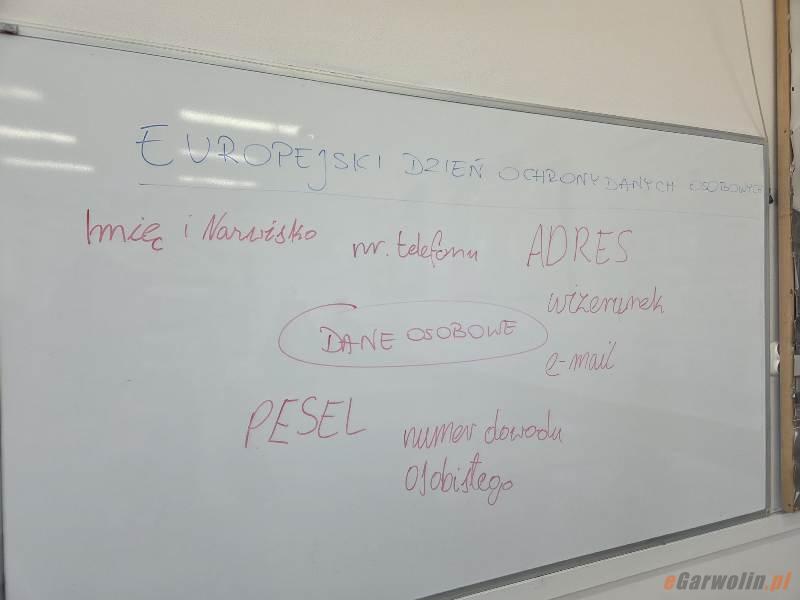 EUROPEJSKI DZIEŃ OCHRONY DANYCH OSOBOWYCH
Imię i Nazwisko
nr. telefonu
ADRES
wizerunek
DANE OSOBOWE
e-mail
PESEL
numer dowodu
osobistego
eGarwolin.pl